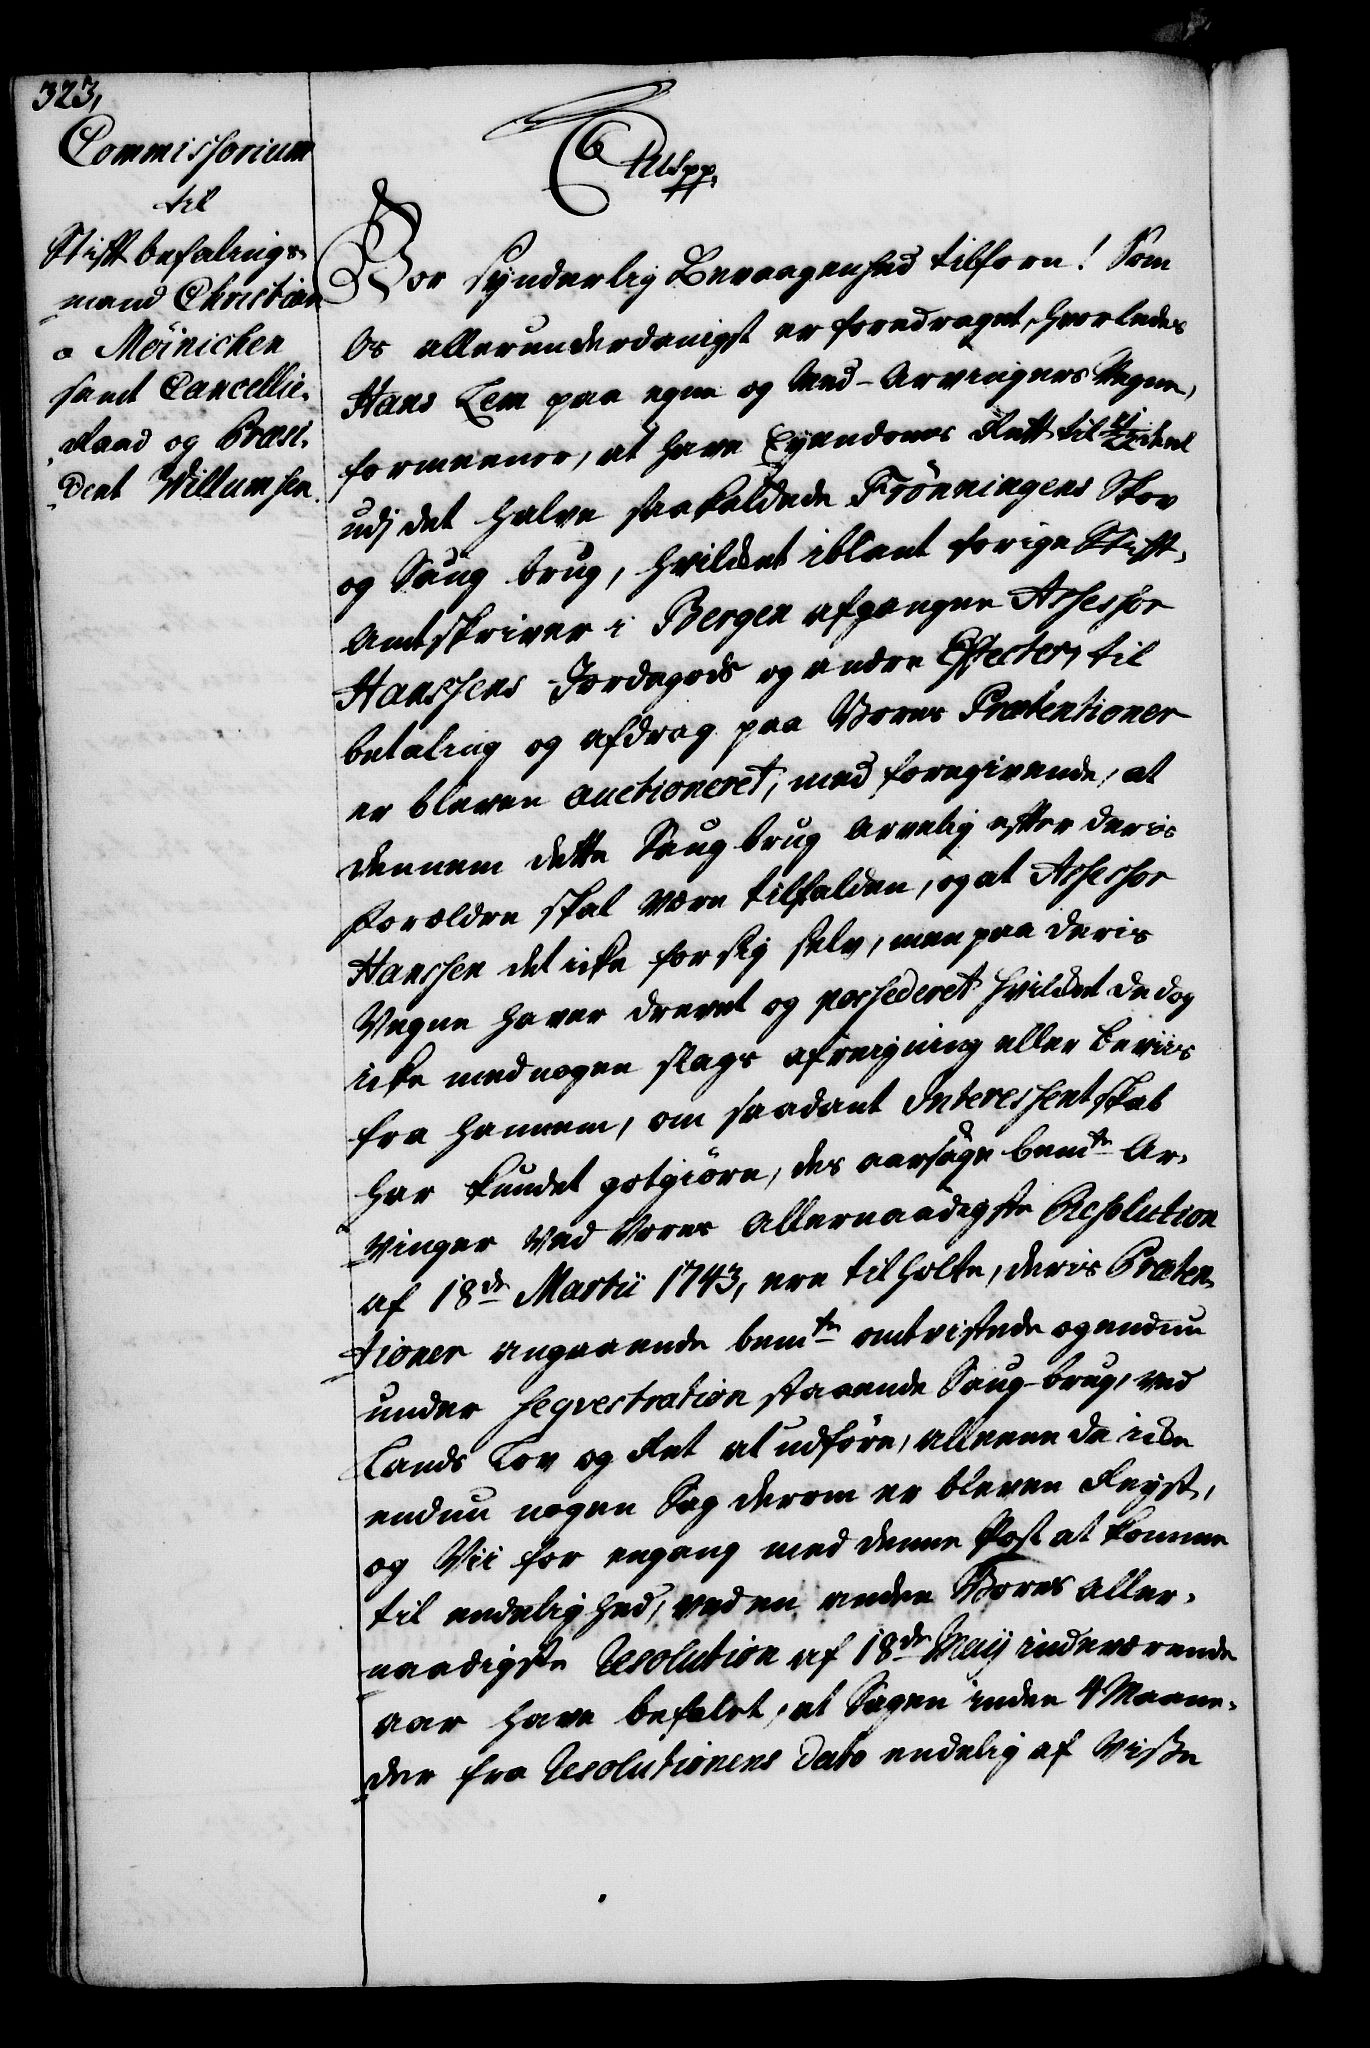 323,
Commissorium
til
Stiftbefalings-
mand Christian
a Møinichen
samt Cancellie-
Raad og Præsi-
dent Willumsen.
C6 tus pp.
Vor synderlig Bevaagenhed tilforn! Som
Os allerunderdanigst er foredraget, hvorledes
Hans Lem paa egne og Med-Arvingers Vegne,
formeener, at have Eyendoms Rett til deel
udj det halve saakaldede Frønningens Skov
og Saug brug, hvilket iblant forige Stift-
Amtskriver i Bergen afgangne Assessor
Hanssens Jordegods og andre Effecter, til
betaling og afdrag paa Vores Prætentioner
er bleven auctioneret, med foregivende, at
dennem dette Saug brug arvelig efter deris
Forældre skal være tilfalden, og at Assessor
Hanssen det icke for sig selv, men paa deris
Vegne haver drevet og possederet hvilket de dog
icke med nogen slags afreigning eller beviis
fra hannem, om saadant Interessentskab
har kundet gotgiøre, des aarsage bemte Ar-
vinger ved Vores Allernaadigste Resolution
af 18de Martii 1743, ere tilholte, deris Præten-
tioner angaaende bemte omtvistede og endnu
under seqvestration staaende Saug-brug, ved
Lands Lov og Ret at udføre, alleene da icke
endnu nogen Sag derom er bleven Reyst,
og Vii for engang med denne Post at komme
til endelighed, ved en anden Vores aller-
naadigste Resolution af 18de Maij indeværende
aar have befalet, at Sagen inden 4 Maane-
der fra Resolutionens dato endelig af Visse